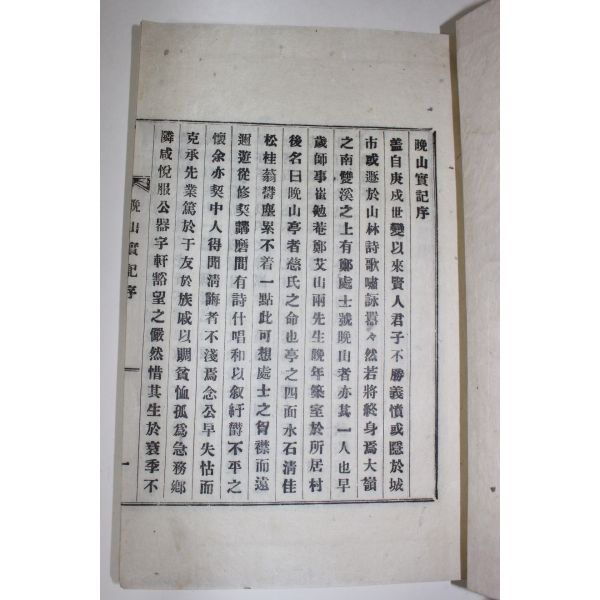 晩山實記序
盖自庚戌世變以來賢人君子不勝義憤或隱於城
市或遯於山林詩歌嘯詠囂々然若將終身焉大嶺
之南雙溪之上有鄭處士號晩山者亦其一人也早
歲師事崔勉菴鄭艾山兩先生晩年築室於所居村
後名曰晩山亭者慈氏之命也亭之四面水石清佳
松桂蓊欝塵累不着一點此可想處士之胷襟而遠
邇遊從修契講磨間有詩什唱和以叙紆欝不平之
懷余亦契中人得聞清誨者不淺焉念公早失怙而
克承先業篤於于友於族戚以賙貧恤孤爲急務鄕
隣咸悅服公器宇軒豁望之儼然惜其生於衰季不
晩山實記序
一